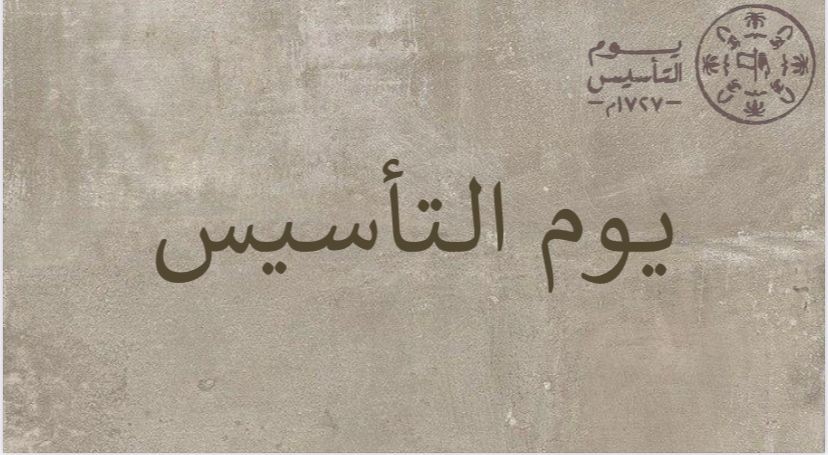 يوم
التأسيس
١٧٢٧م
يوم التأسيس